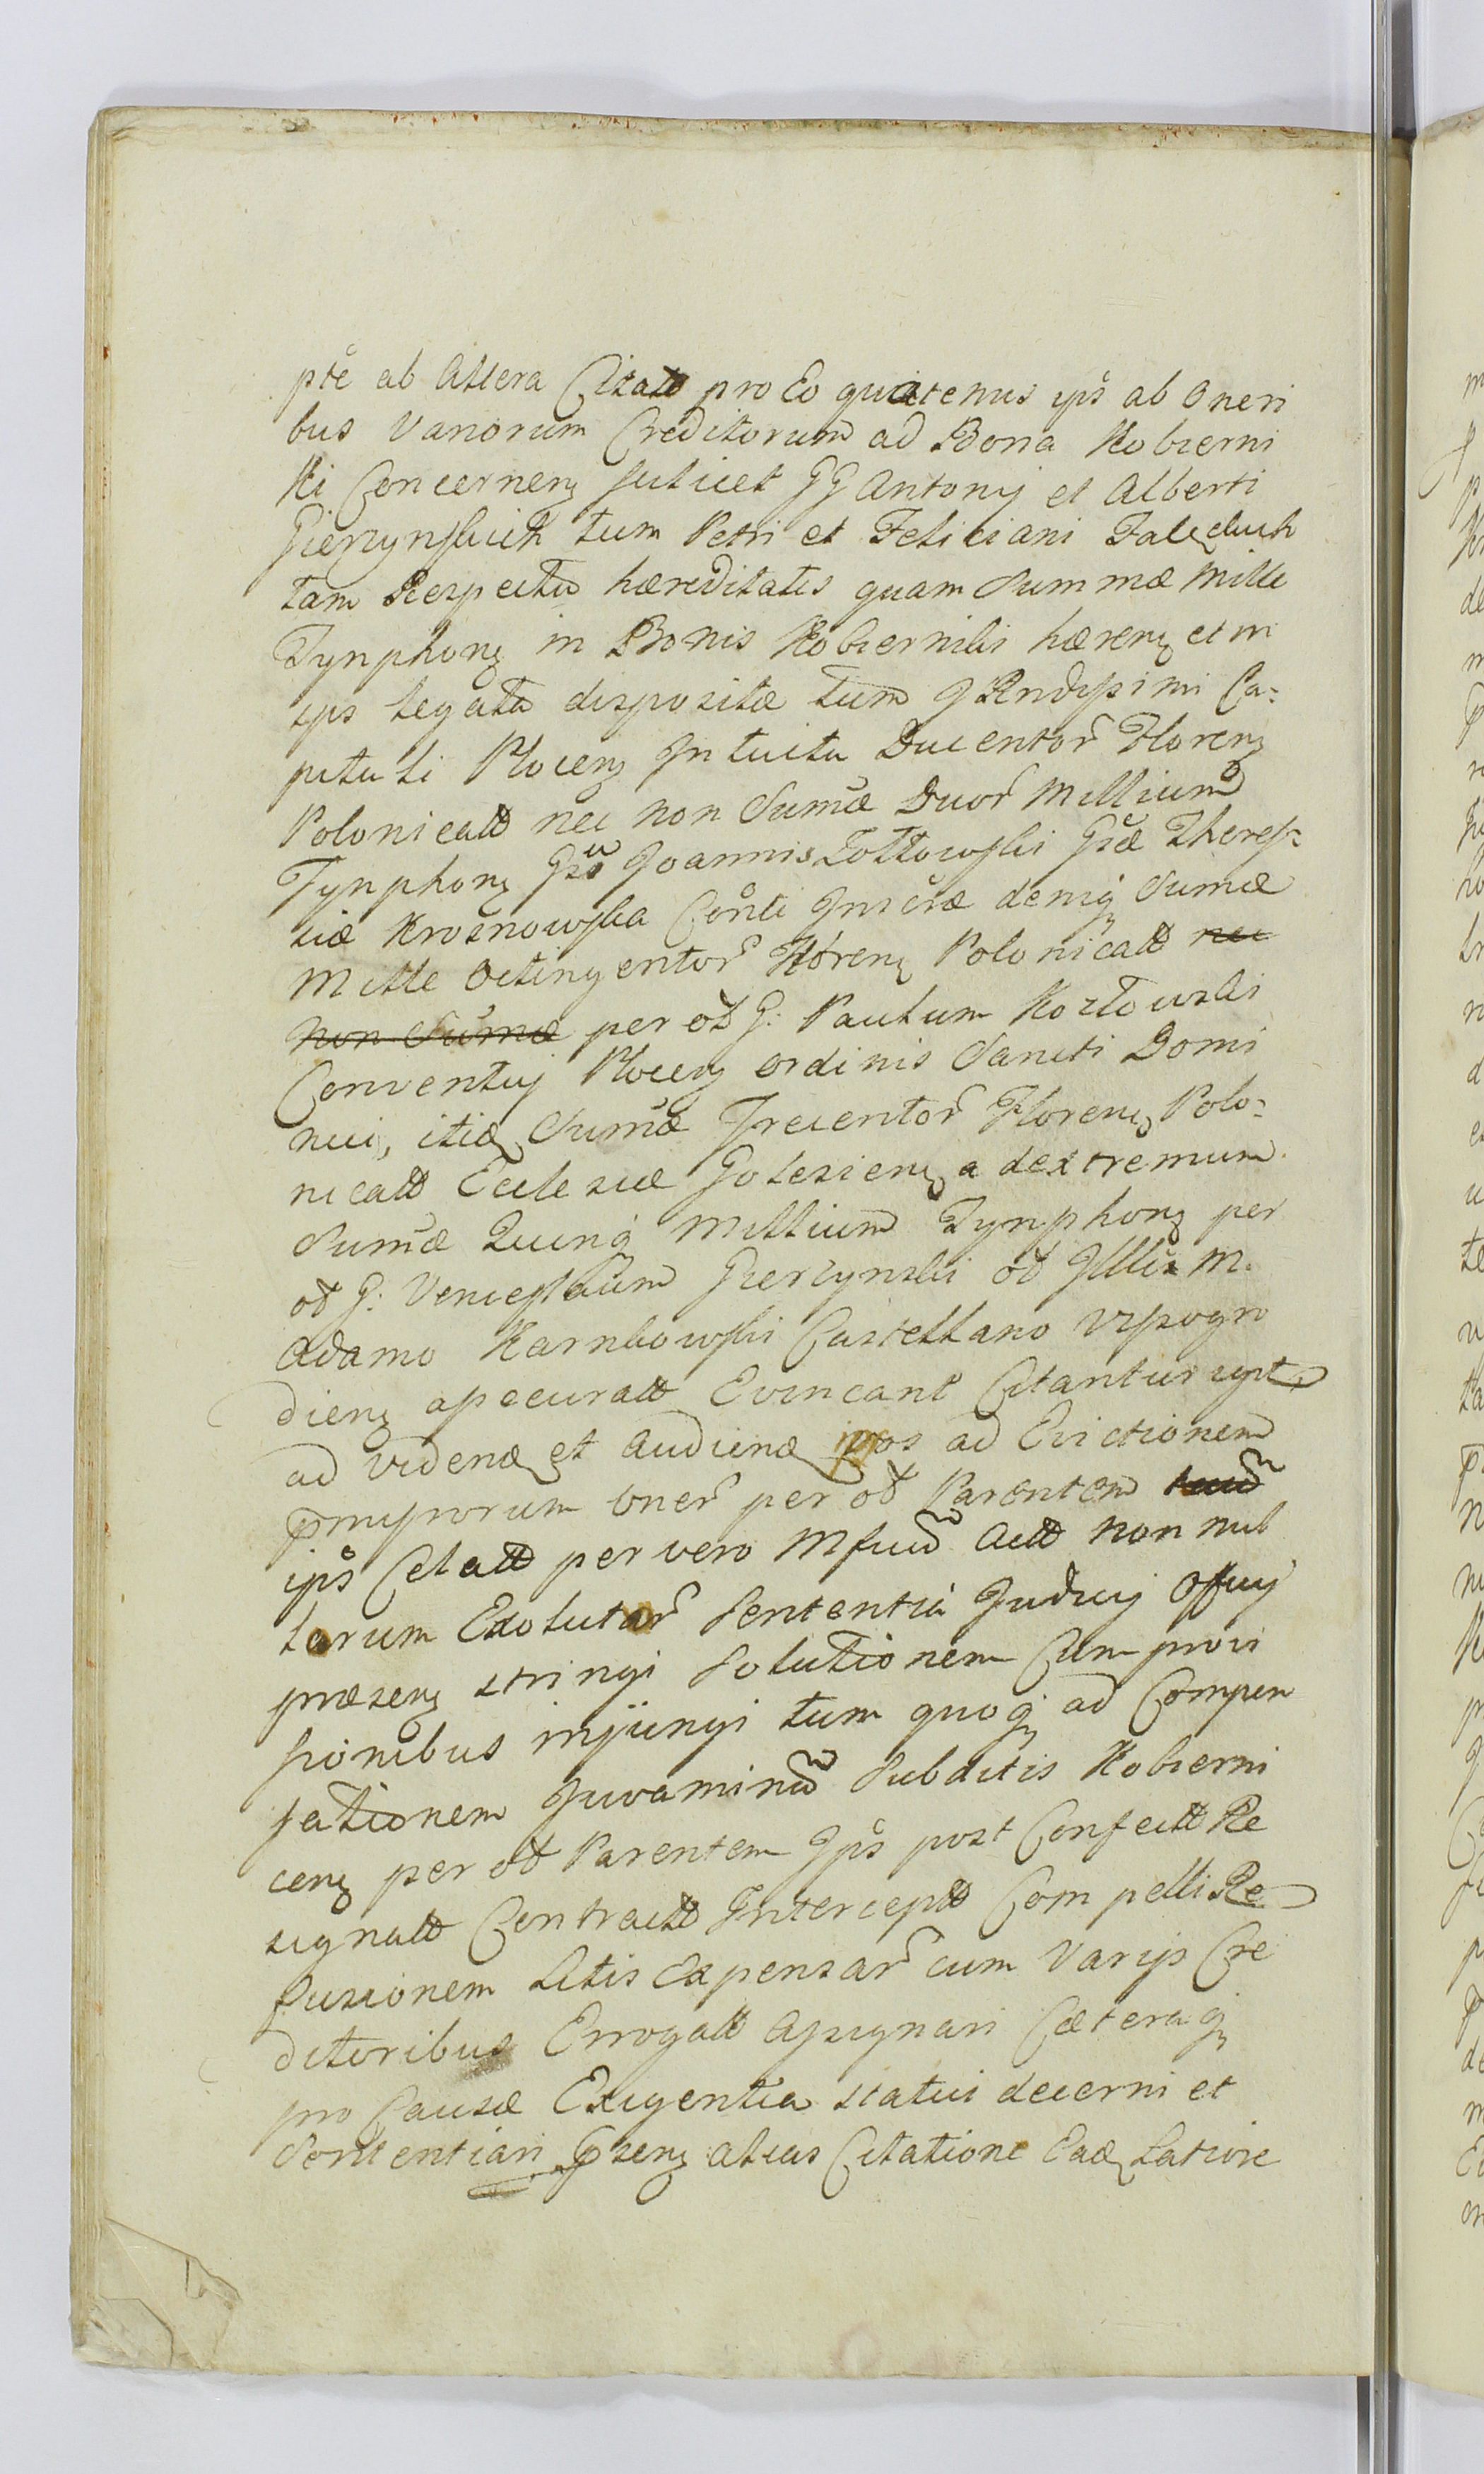 pte ab Altera Citatt pro Eo quatenus ips ab Oneri
bus Variorum Creditorum ad Bona Kobierni
ki Concernen scilicet GG Antonij et Alberti
Gierzynskich tum Petri et Feliciani Falęckich
tam Respectu hæreditatis quam Summæ Mille
Tynphon in Bonis Kobierniki hæren et in
ips legata dispositæ tum Rndissimi Ca=
pituli Plocen Intuitu Ducentor Floren
Polonicatt nec non Sumæ Duor Millium
Tynphon Joannis Zottowski Gsæ There=
siæ Krosnowska Conti Inscræ deniq Sumæ
Mille Octingentor Floren Polonicatt nec
non Sumæ per od G: Paulum Kozłowski
Conventuj Plocen ordinis Sancti Domi
nici, itiæ Sumæ Trecentor Floren Polo=
nicatt Ecclesiæ Golesien adextremum
Sumæ Quinq Millium Tynphon per
od G: Venceslaum Gierzynski od Illu M.
Adamo Karnkowski Castellano Vyssogro
dien assecuratt Evincant Citantur
ad videnæ et Audienæ ipsos ad Evictionem
pmissorum oner per od Parentem
ips Celatt per vero Mfum Actt non nul
larum Exolutar Sententiá Judicij Officij
præsen stringi Solutionem Cum provi
sionibus injungi tum quoq ad Compen
sationem Juvaminu Subditis Kobierni
cen per od Parentem Ips post Confectt Re
signatt Contractt Interceptt Compelli Re
fusionem Litis Expensar cum Varijs Cre
ditoribus Errogatt Assignari Cæteraq
pro Causæ Exigentia statui decerni et
Sententiari psen alias Citatione Eadę Latiore